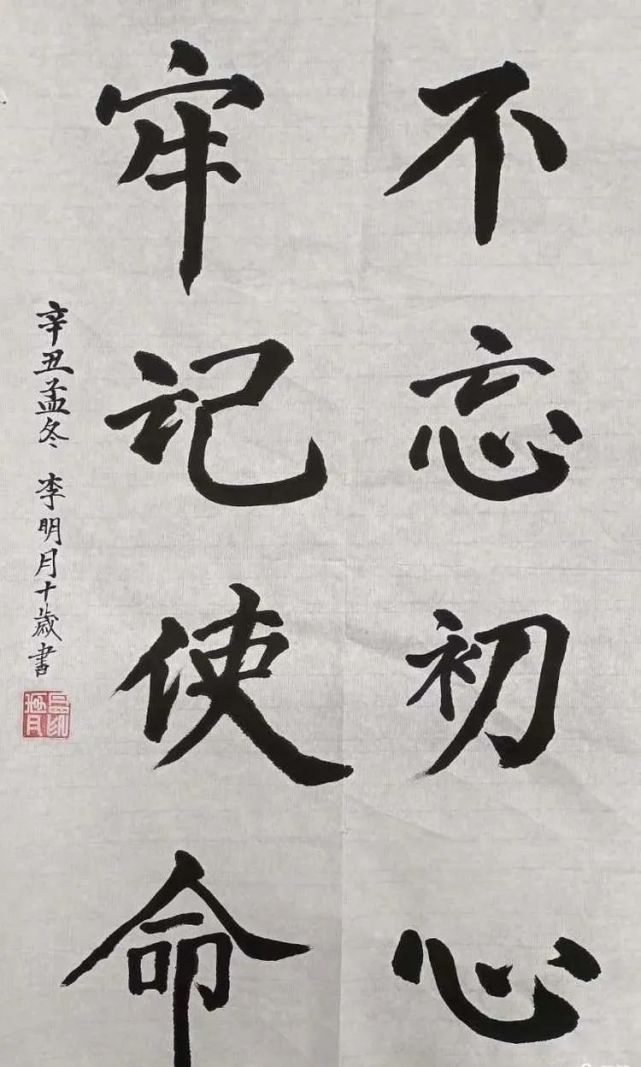 不忘初心
牢记使命
辛丑孟冬 李明月十歲書